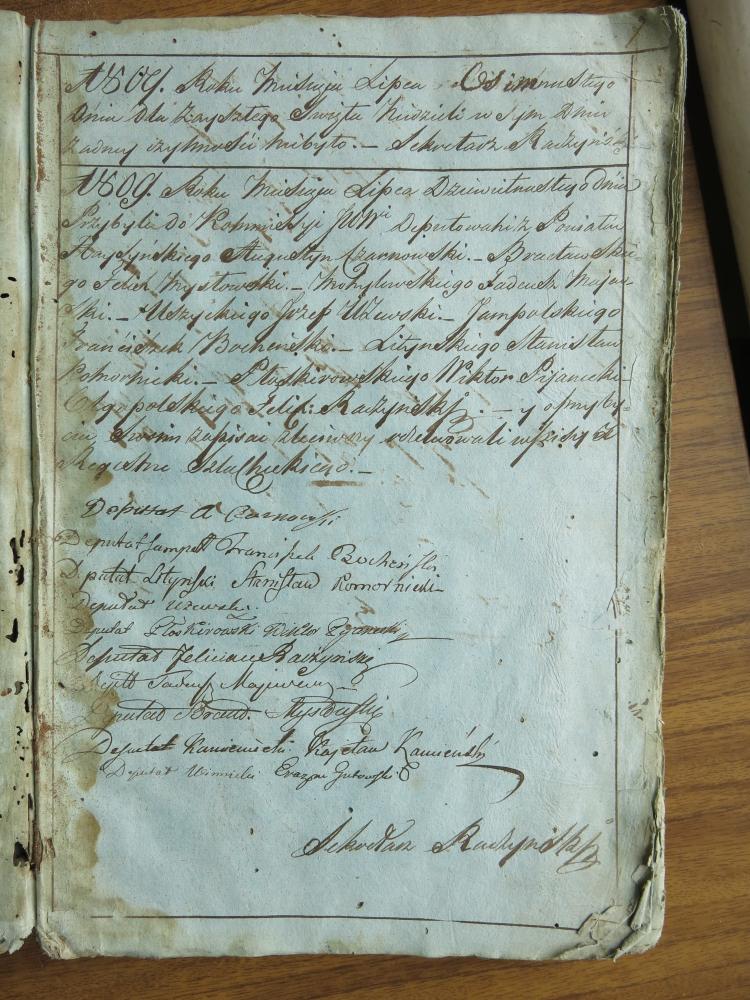 1809. Roku Miesiąca Lipca Osimnastego
Dnia dla Zayszłego Święta Niedzieli w Tym Dniu
żadney czynności niebyło. — Sekretarz Raczyński
1809. Roku Miesiąca Lipca Dziewietnastego dnia
Przybyli do Kommissyi JWW Deputowani z Powiatu
Haysynskiego Augustyn Czarnowski. — Bracławskie-
go Felix Mysłowski. — Mohylowskiego Tadeusz Majew-
ski. — Uszyckiego Jozef Użewski. — Jampolskiego
Franciszek Bochenski. — Lityńskiego Stanisław
Komornicki. — Płoskirowskiego Wiktor Pijanicki
Olgopolskiego Felic: Raczynski. — y o przyby-
ciu Swoim zapisai
Szlacheckiego. —
Deputat A Czarnowski
Deputat Jampol Franciszek Bocheński
Deputat Lityński Stanisław Komornicki
Deputat Użewski.
Deputat Płoskirowski Wiktor
Deputat Felician Raczyński
Tadeusz Majewski
Deputat Bracł. Mysłowski
Deputat Kamieniecki Kajetan Kamieński
Deputat Winnicki Erazm Gutowski
Sekretarz Raczyński